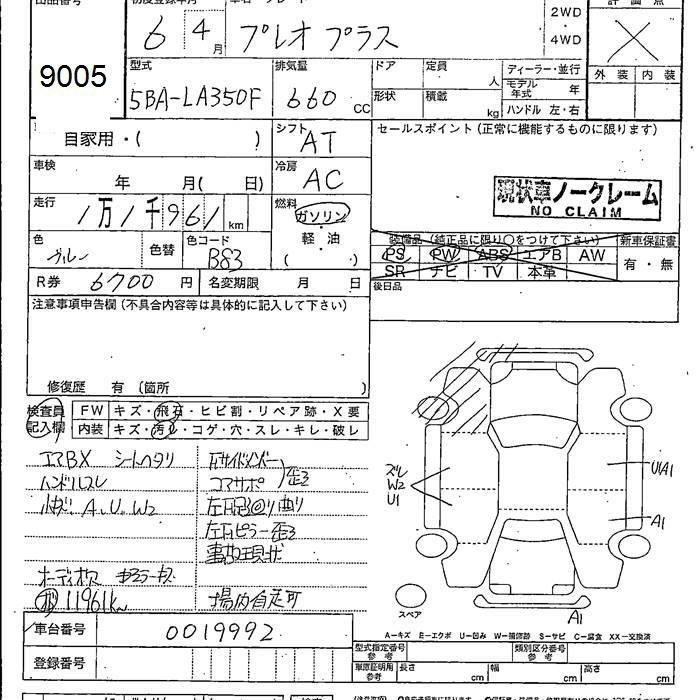 出品番号
初度登録年月
2WD
・
4WD
評価点
6 4月
プレオ プラス
9005
型式
排気量
ドア
定員
人
ディーラー・並行
モデル年式 年
外装 内装
5BA-LA350F
660 cc
形状
積載
kg
ハンドル 左・右
自家用・( )
シフト
AT
セールスポイント (正常に機能するものに限ります)
車検
年 月( 日)
冷房
AC
現状車ノークレーム
NO CLAIM
走行
1万1千961 km
燃料
ガソリン
・
軽・油
( )
装備品 (純正品に限り○をつけて下さい)
新車保証書
色
ブルー
色替
色コード
B83
PS PW ABS エアB AW
SR ナビ TV 本革
有・無
R券 6700 円
名変期限 月 日
後日品
注意事項申告欄 (不具合内容等は具体的に記入して下さい)
修復歴 有 (箇所 )
検査員
記入欄
FW キズ・飛石・ヒビ割・リペア跡・X要
内装 キズ・汚れ・コゲ・穴・スレ・キレ・破レ
エアBX シートヘタリ
ハンドルスレ
A.U.W2
左右ピラー歪
事故現状
11961km
場内自走可
W2
U1
U1A1
A1
スペア
A1
A-キズ E-エクボ U-凹み W-補修跡 S-サビ C-腐食 XX-交換済
車台番号
0019992
登録番号
型式指定番号
参考
類別区分番号
参考
車庫証明用
参考
長さ cm
幅 cm
高さ cm